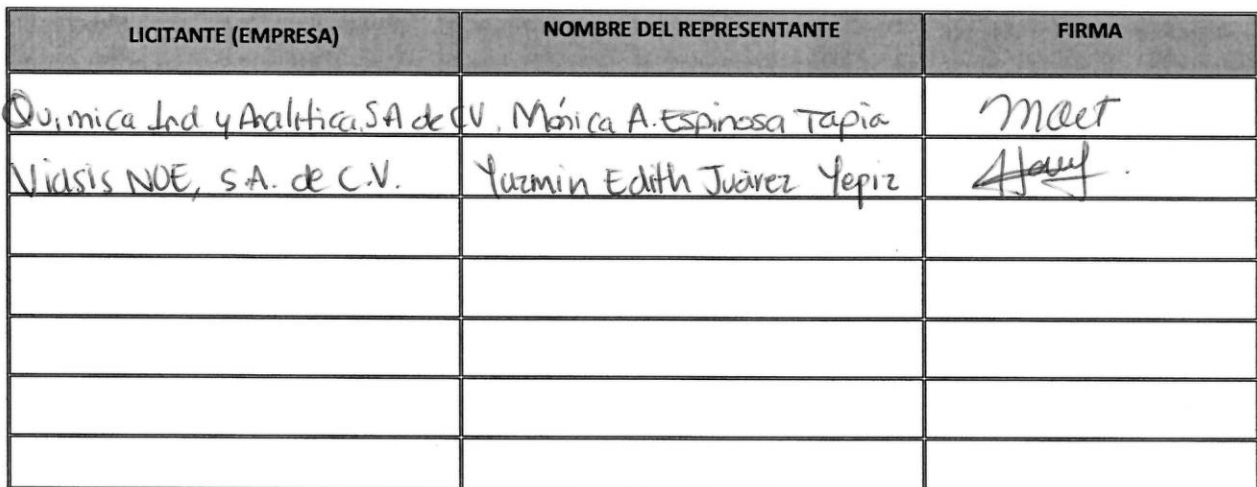 LICITANTE (EMPRESA) NOMBRE DEL REPRESENTANTE FIRMA
Química Ind y Analítica, S.A de C.V. Mónica A. Espinosa Tapia Maet
Viasis NOE, S.A. de C.V. Yuzmin Edith Juárez Yepiz